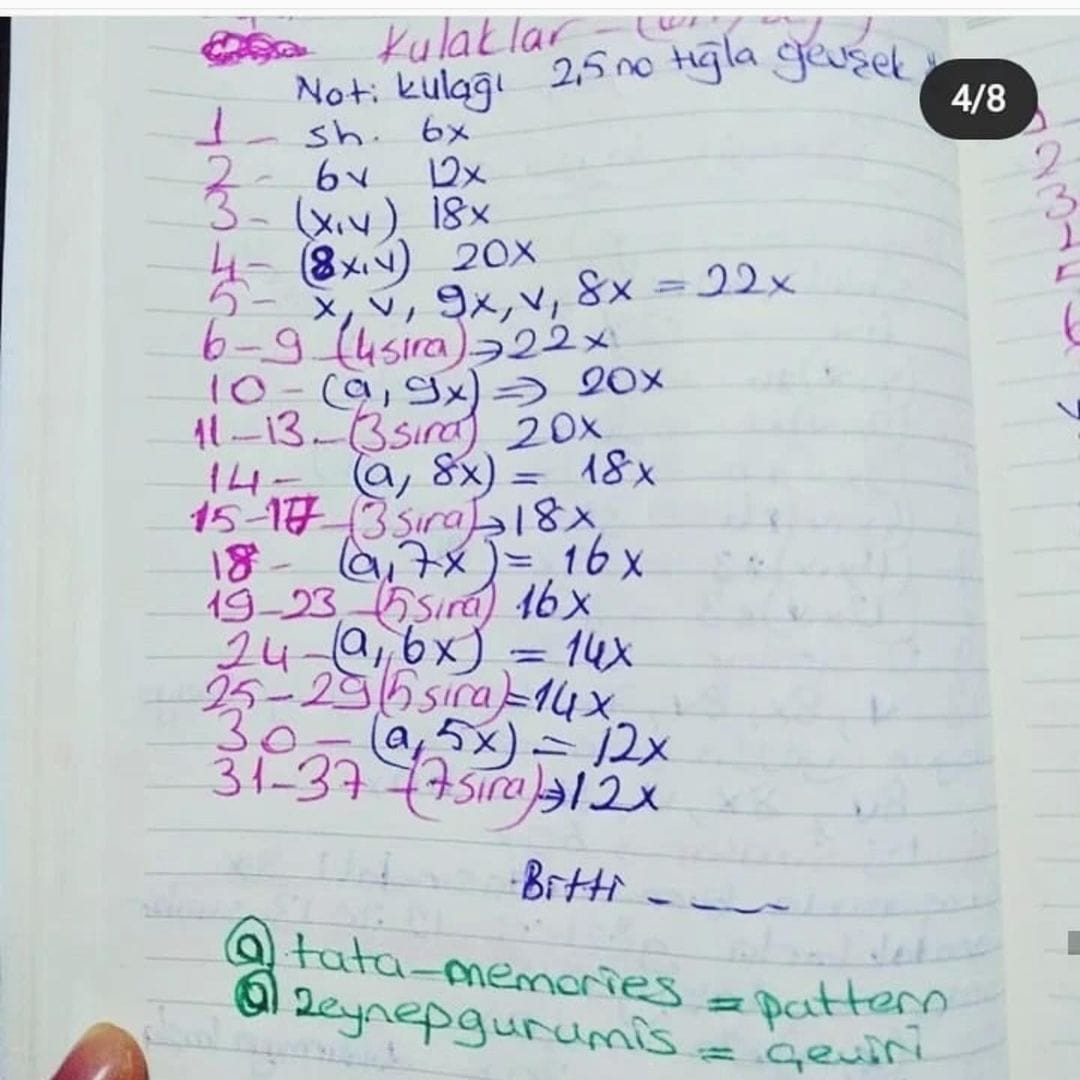 Kulaklar
Not: kulağı 2,5 no tığla gevşek
4/8
1- sh. 6x
2- 6v 12x
3- (x,v) 18x
4- (8x,v) 20x
5- x, v, 9x, v, 8x = 22x
6-9 (4 sıra) → 22x
10- (a, 9x) ⇒ 20x
11-13- (3 sıra) 20x
14- (a, 8x) = 18x
15-17-(3 sıra) → 18x
18- (a, 7x) = 16x
19-23-(5 sıra) 16x
24-(a, 6x) = 14x
25-29 (5 sıra) = 14x
30- (a, 5x) = 12x
31-37-(7 sıra) ⇒ 12x
Bitti
@ tata-memories = pattern
@ zeynepgurumis = çeviri
2
3
5